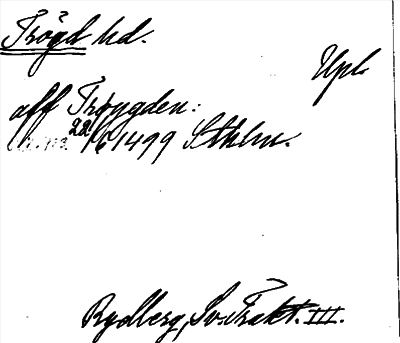 Trögd hd.
Upl.
aff Trøygden:
22/6 1499 Sthlm.
Rydberg, Sv. Trakt. III.